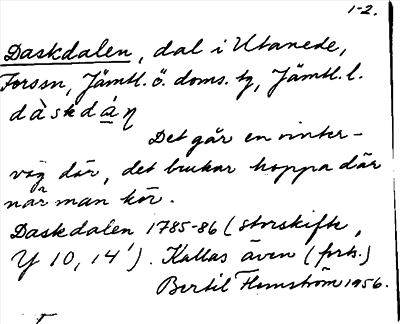 1-2.
Daskdalen, dal i Utanede,
Forssn, Jämtl. ö. doms. tg, Jämtl. l.
dàskdáꞑ
Det går en vinter-
väg där, det brukar hoppa där
när man kör.
Daskdalen 1785-86 (storskifte,
Y 10, 14'). Kallas även (forts.)
Bertil Flemström 1956.